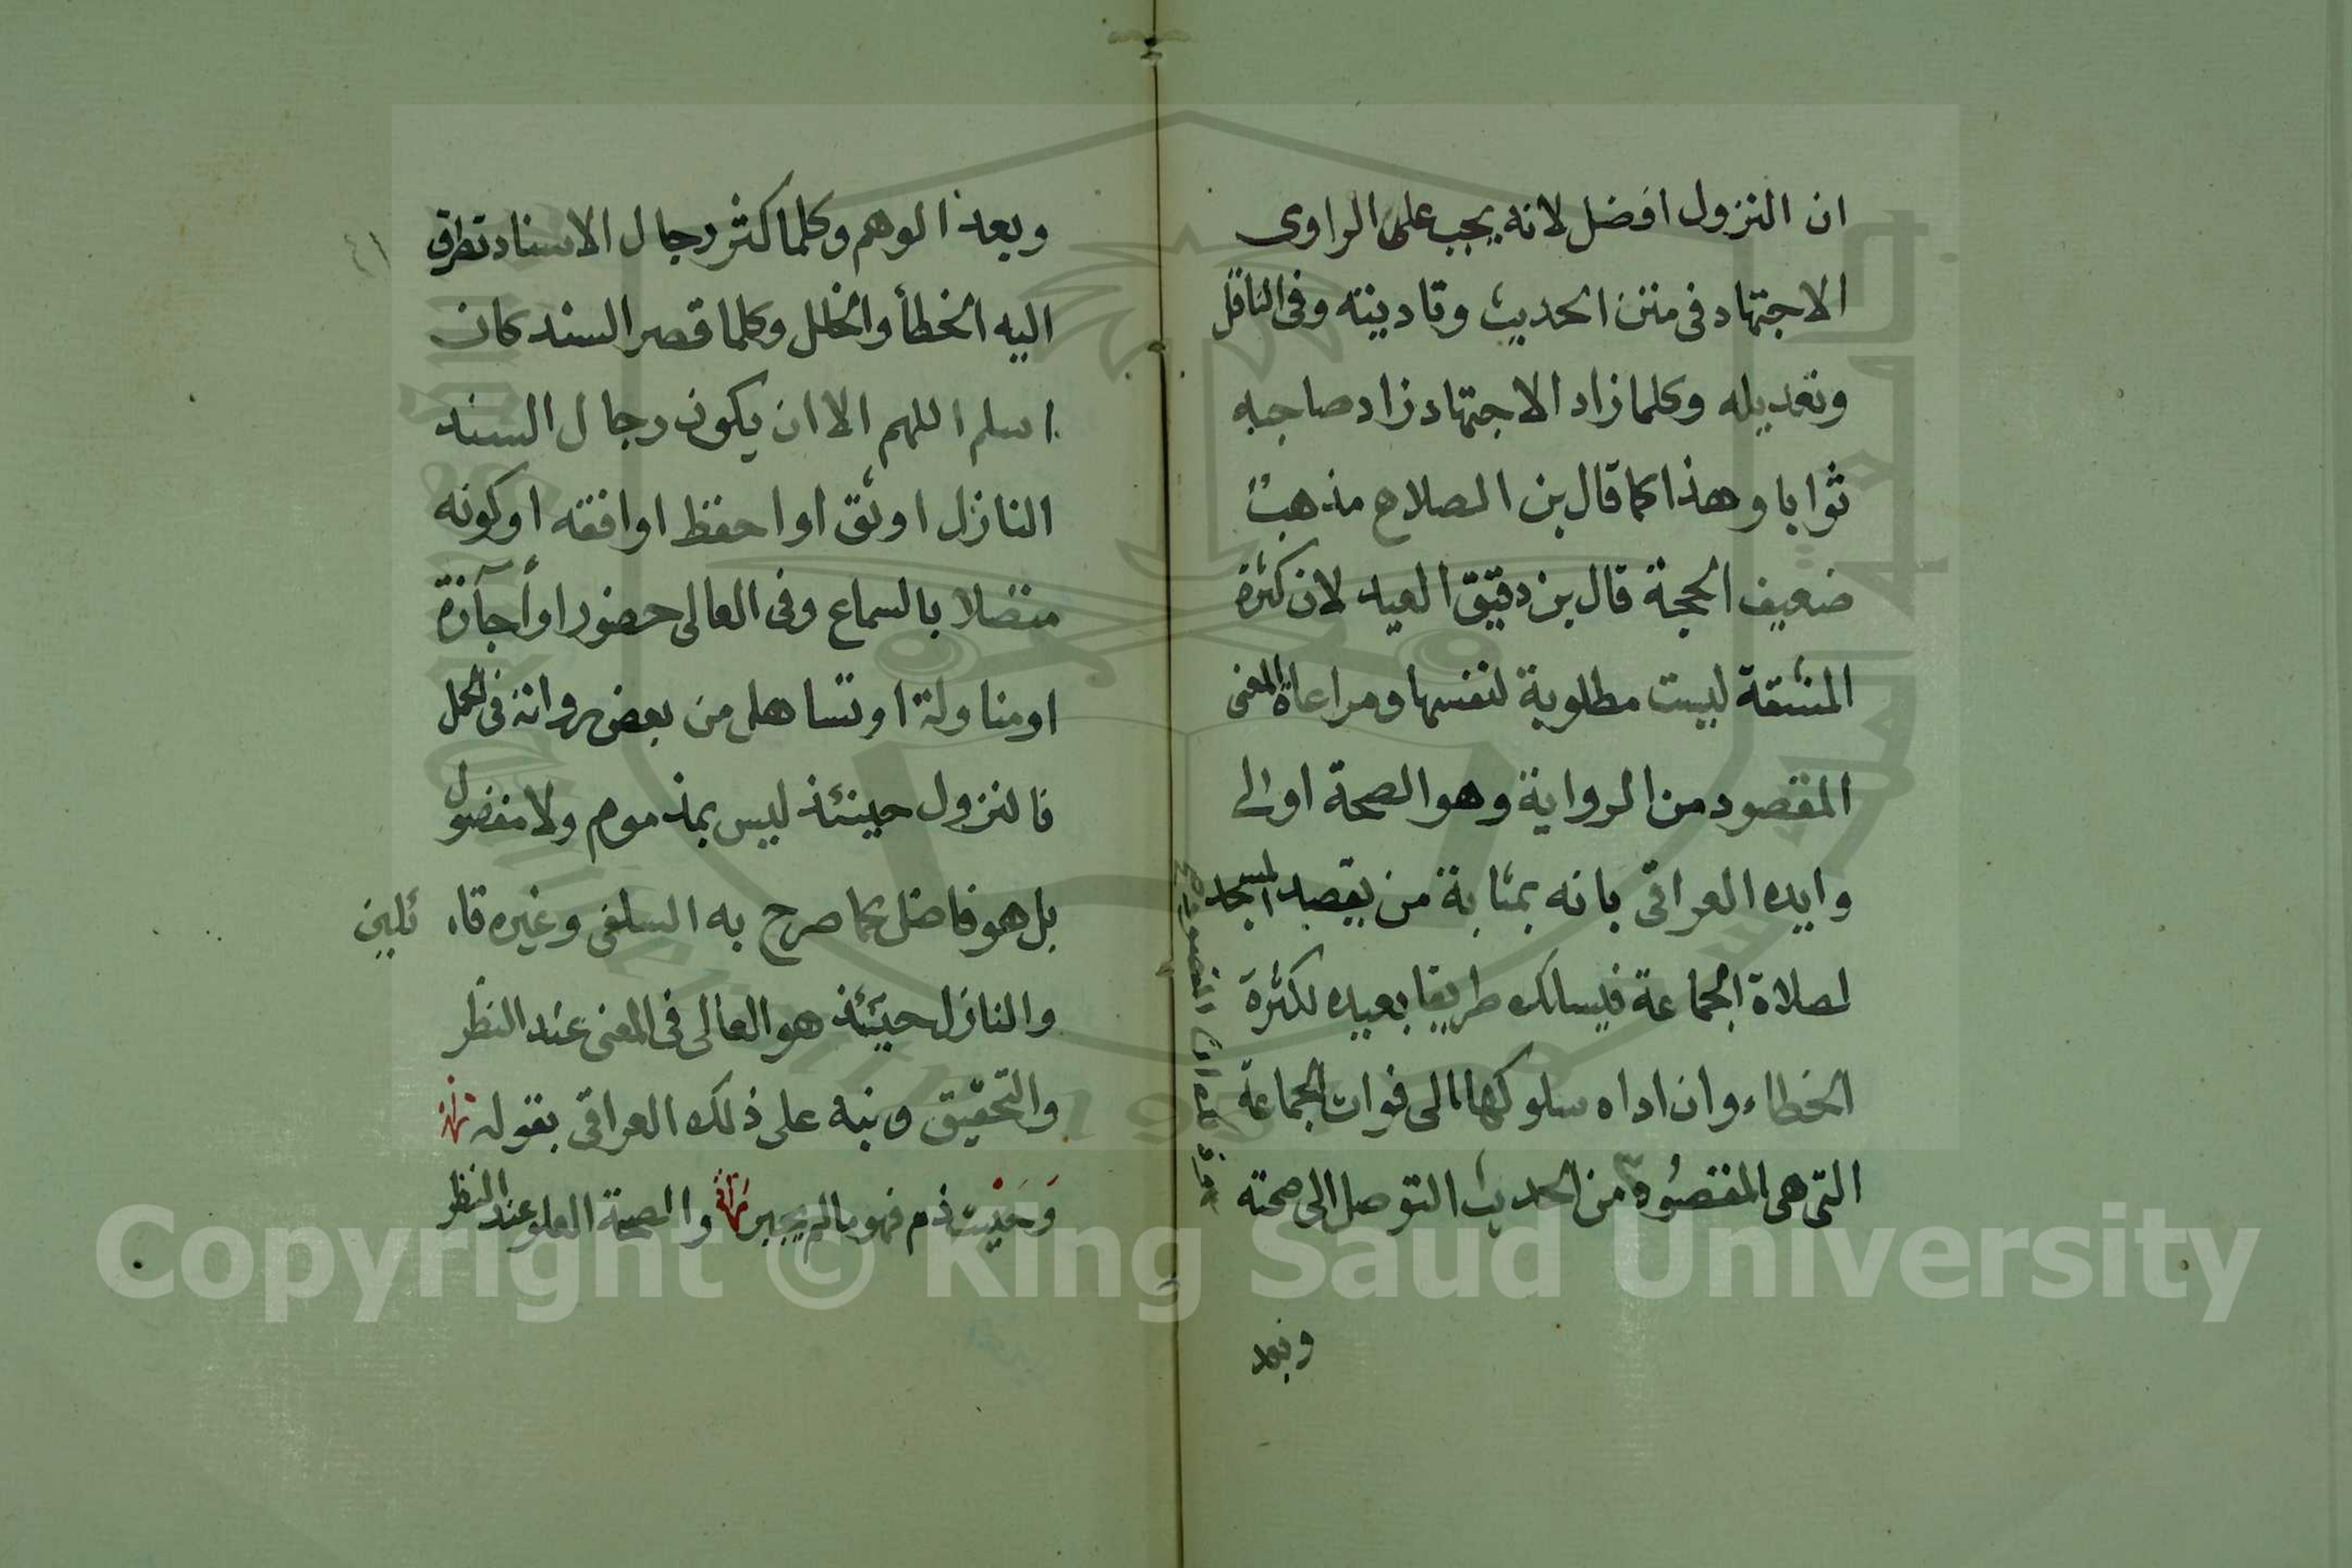 ان النزول افضل لانه يجب على الراوى
الاجتهاد فى متن الحديث وتاديته وفى الناقل
وتعديله وكلما زاد الاجتهاد زاد صاحبه
ثوابا وهذا كما قال بن الصلاح مذهب
ضعيف الحجة قال بن دقيق العيد لان كثرة
المشقة ليست مطلوبة لنفسها ومراعاة المعنى
المقصود من الرواية وهو الصحة اولى
وايده العراقى بانه بمثابة من يقصد المسجد
لصلاة الجماعة فيسلك طريقا بعيده لكثرة
الخطاء وان اداه سلوكها الى فوات الجماعة
التى هى المقصود من الحديث التوصل الى صحته
وبعد
وبعد الوهم وكلما كثر رجال الاسناد تطرق
اليه الخطأ والخلل وكلما قصر السند كان
اسلم اللهم الا ان يكون رجال السند
النازل اوثق او احفظ او افقه او كونه
متصلا بالسماع وفى العالى حضور او أجآزة
او مناولة او تساهل من بعض رواته فى الحمل
فالنزول حينئذ ليس بمذموم ولا مفضول
بل هو فاضل كما صرح به السلفى وغيره قا
والنازل حينئذ هو العالى فى المعنى عند النظر
والتحقيق ونبه على ذلك العراقى بقوله
وَحَيْث ذم فهو مالم يجبر والصحة العلو عند النظر
٤١
Copyright © King Saud University
1957